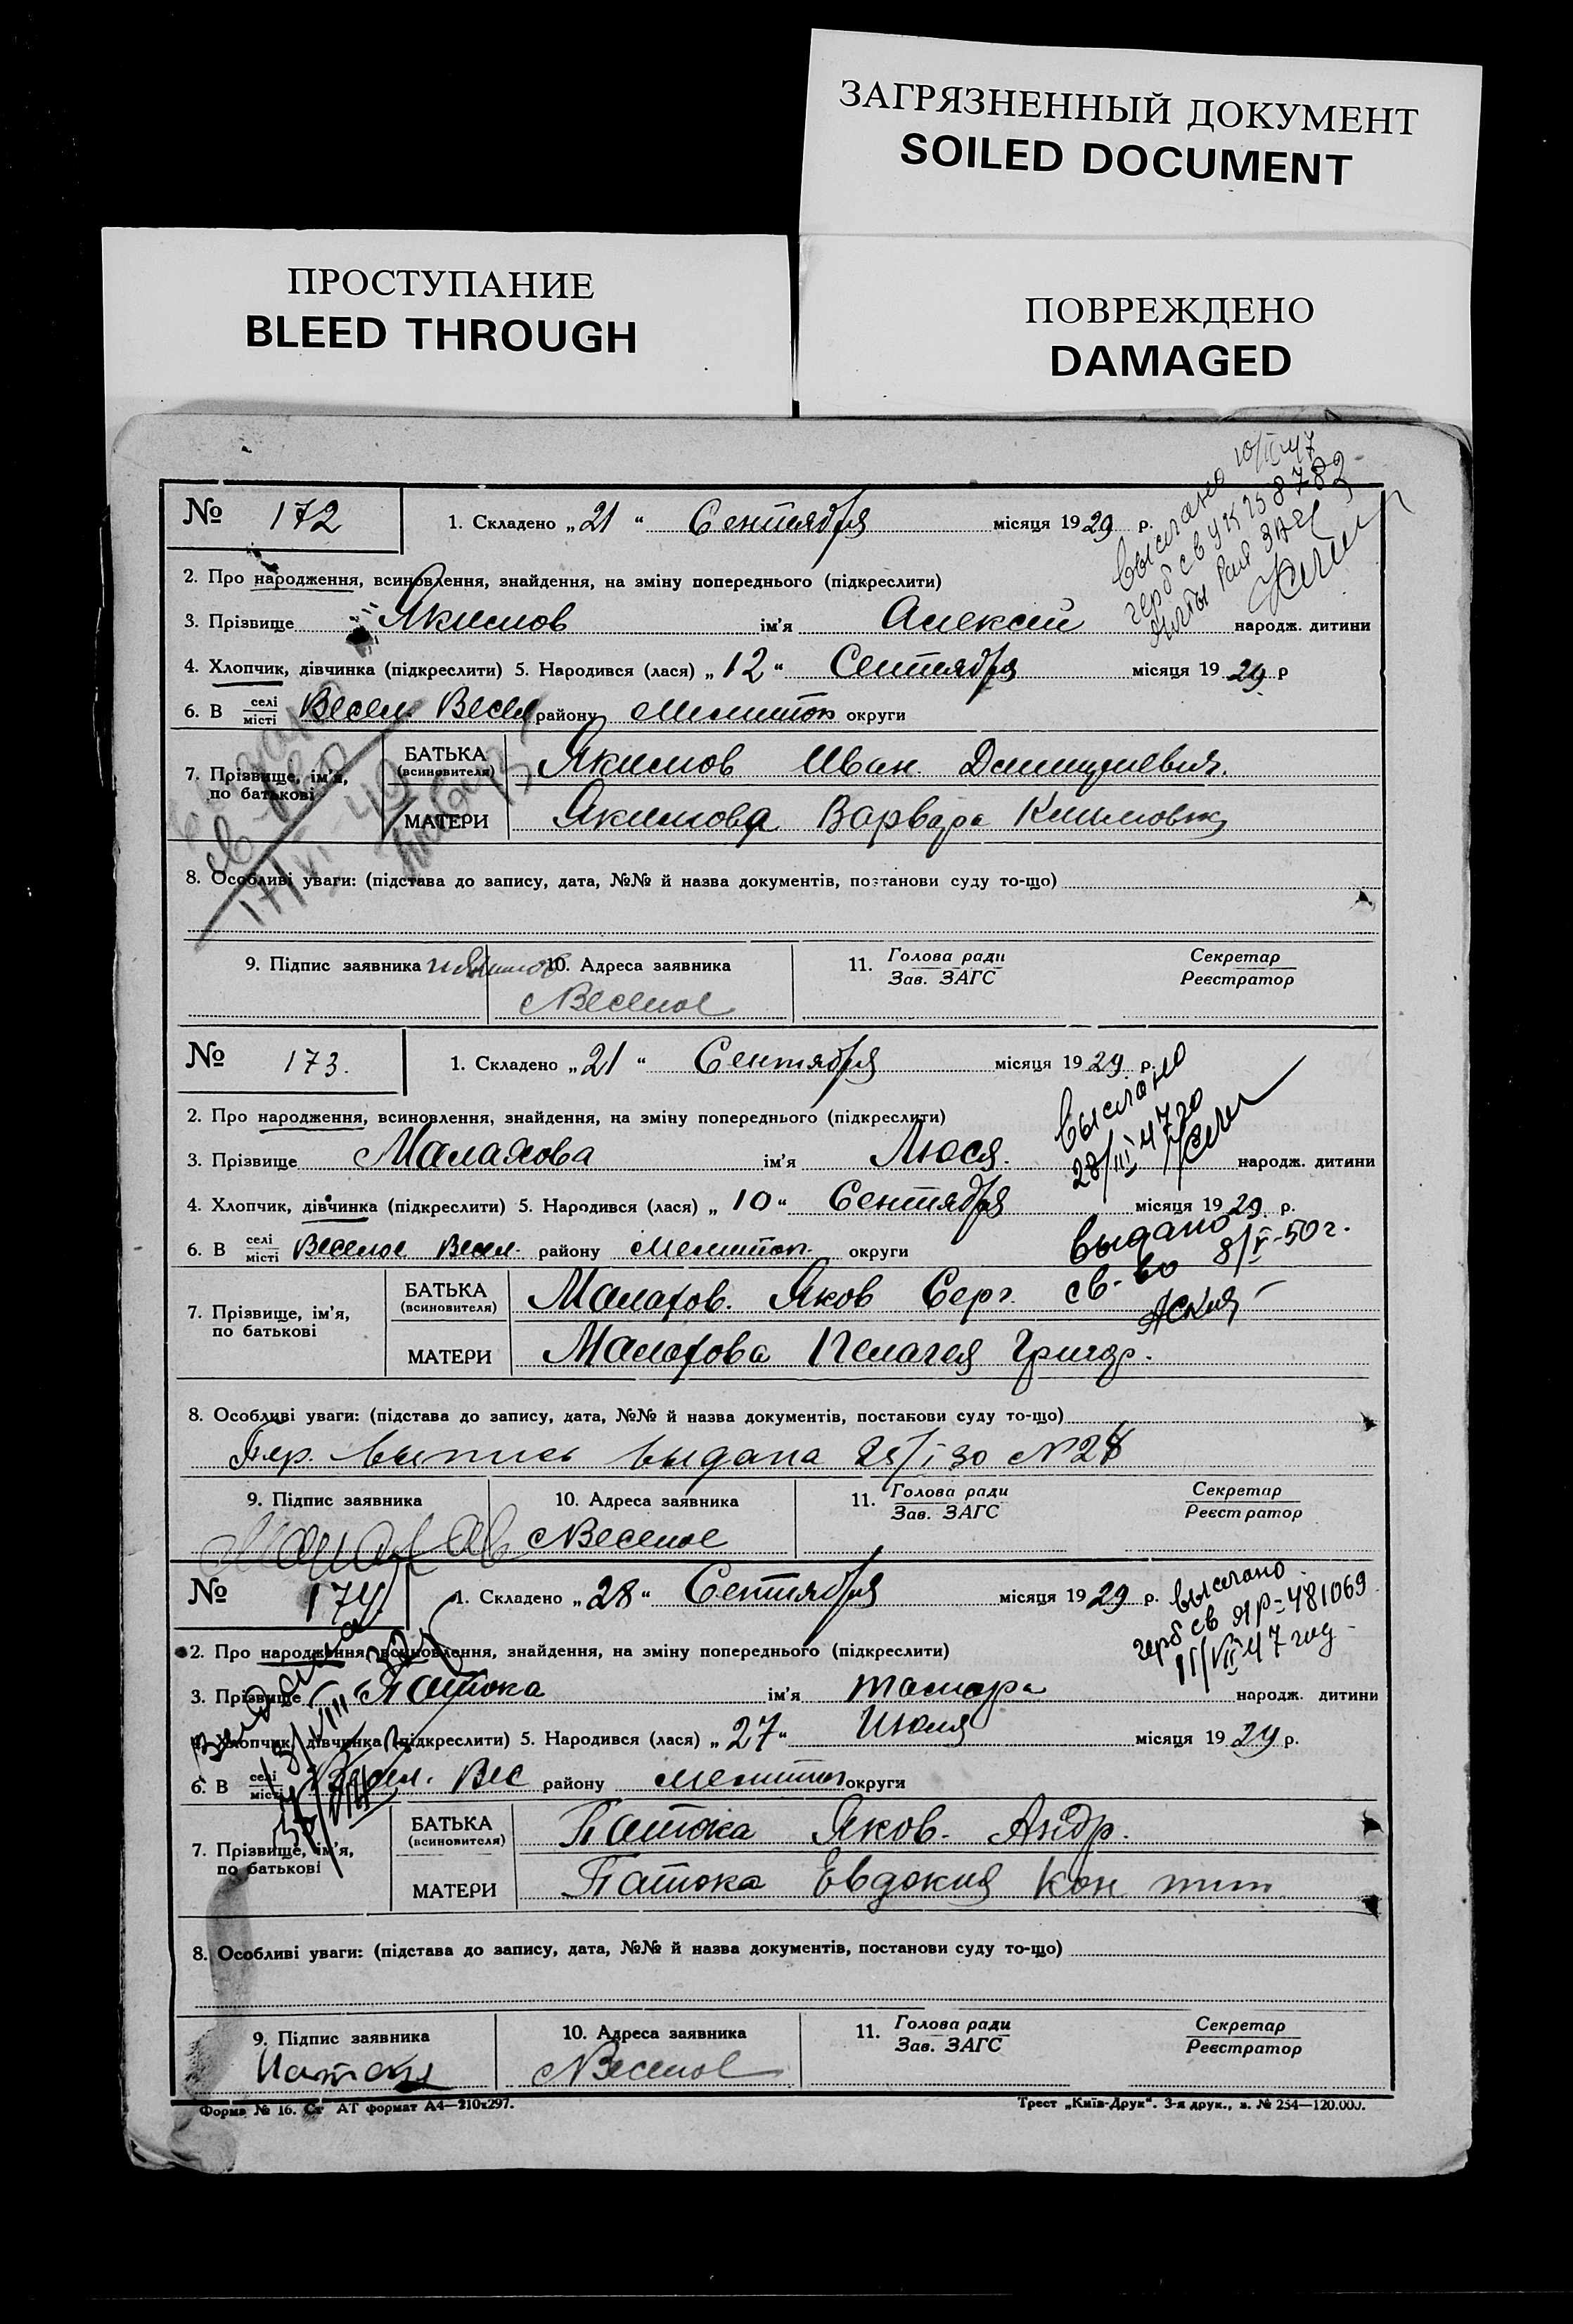 ЗАГРЯЗНЕННЫЙ ДОКУМЕНТ
SOILED DOCUMENT
ПРОСТУПАНИЕ
BLEED THROUGH
ПОВРЕЖДЕНО
DAMAGED
№ 172
1. Складено „21“ Сентября місяця 1929 р.
выслано
2. Про народження, всиновлення, знайдення, на зміну попереднього (підкреслити)
3. Прізвище Якимов ім'я Алексей народж. дитини
4. Хлопчик, дівчинка (підкреслити) 5. Народився (лася) „12“ Сентября місяця 1929 р
6. В селі місті Весел. Весел району Мелитоп округи
7. Прізвище, ім'я, по батькові
БАТЬКА (всиновителя) Якимов Иван
МАТЕРИ Якимова Варвара
8. Особливі уваги: (підстава до запису, дата, №№ й назва документів, постанови суду то-що)
9. Підпис заявника
10. Адреса заявника
Веселое
11. Голова ради
Зав. ЗАГС
Секретар
Реєстратор
№ 173.
1. Складено „21“ Сентября місяця 1929 р.
выслано
28/III 47 го
2. Про народження, всиновлення, знайдення, на зміну попереднього (підкреслити)
3. Прізвище Малахова ім'я Люся. народж. дитини
4. Хлопчик, дівчинка (підкреслити) 5. Народився (лася) „10“ Сентября місяця 1929 р.
6. В селі місті Веселое Весел. району Мелитоп. округи
выдано
св-во 8/V-50 г.
7. Прізвище, ім'я, по батькові
БАТЬКА (всиновителя) Малахов. Яков Серг.
МАТЕРИ Малахова Пелагея Григор.
8. Особливі уваги: (підстава до запису, дата, №№ й назва документів, постанови суду то-що)
Пер. выпись выдана 25/I 30 N 28
9. Підпис заявника
Малахов
10. Адреса заявника
Веселое
11. Голова ради
Зав. ЗАГС
Секретар
Реєстратор
№ 174
1. Складено „28“ Сентября місяця 1929 р.
выслано
герб св ЯР-481069
11/VII 47 год
2. Про народження, всиновлення, знайдення, на зміну попереднього (підкреслити)
3. Прізвище Патока ім'я Тамара народж. дитини
4. Хлопчик, дівчинка (підкреслити) 5. Народився (лася) „27“ Июля місяця 1929 р.
6. В селі місті Весел. Вес району Мелитоп округи
7. Прізвище, ім'я, по батькові
БАТЬКА (всиновителя) Патока Яков. Андр.
МАТЕРИ Патока Евдокия Кон
8. Особливі уваги: (підстава до запису, дата, №№ й назва документів, постанови суду то-що)
9. Підпис заявника
10. Адреса заявника
Веселое
11. Голова ради
Зав. ЗАГС
Секретар
Реєстратор
Форма № 16. Ст АТ формат А4—210х297.
Трест „Київ-Друк“. 3-я друк., з. № 254—120.000.